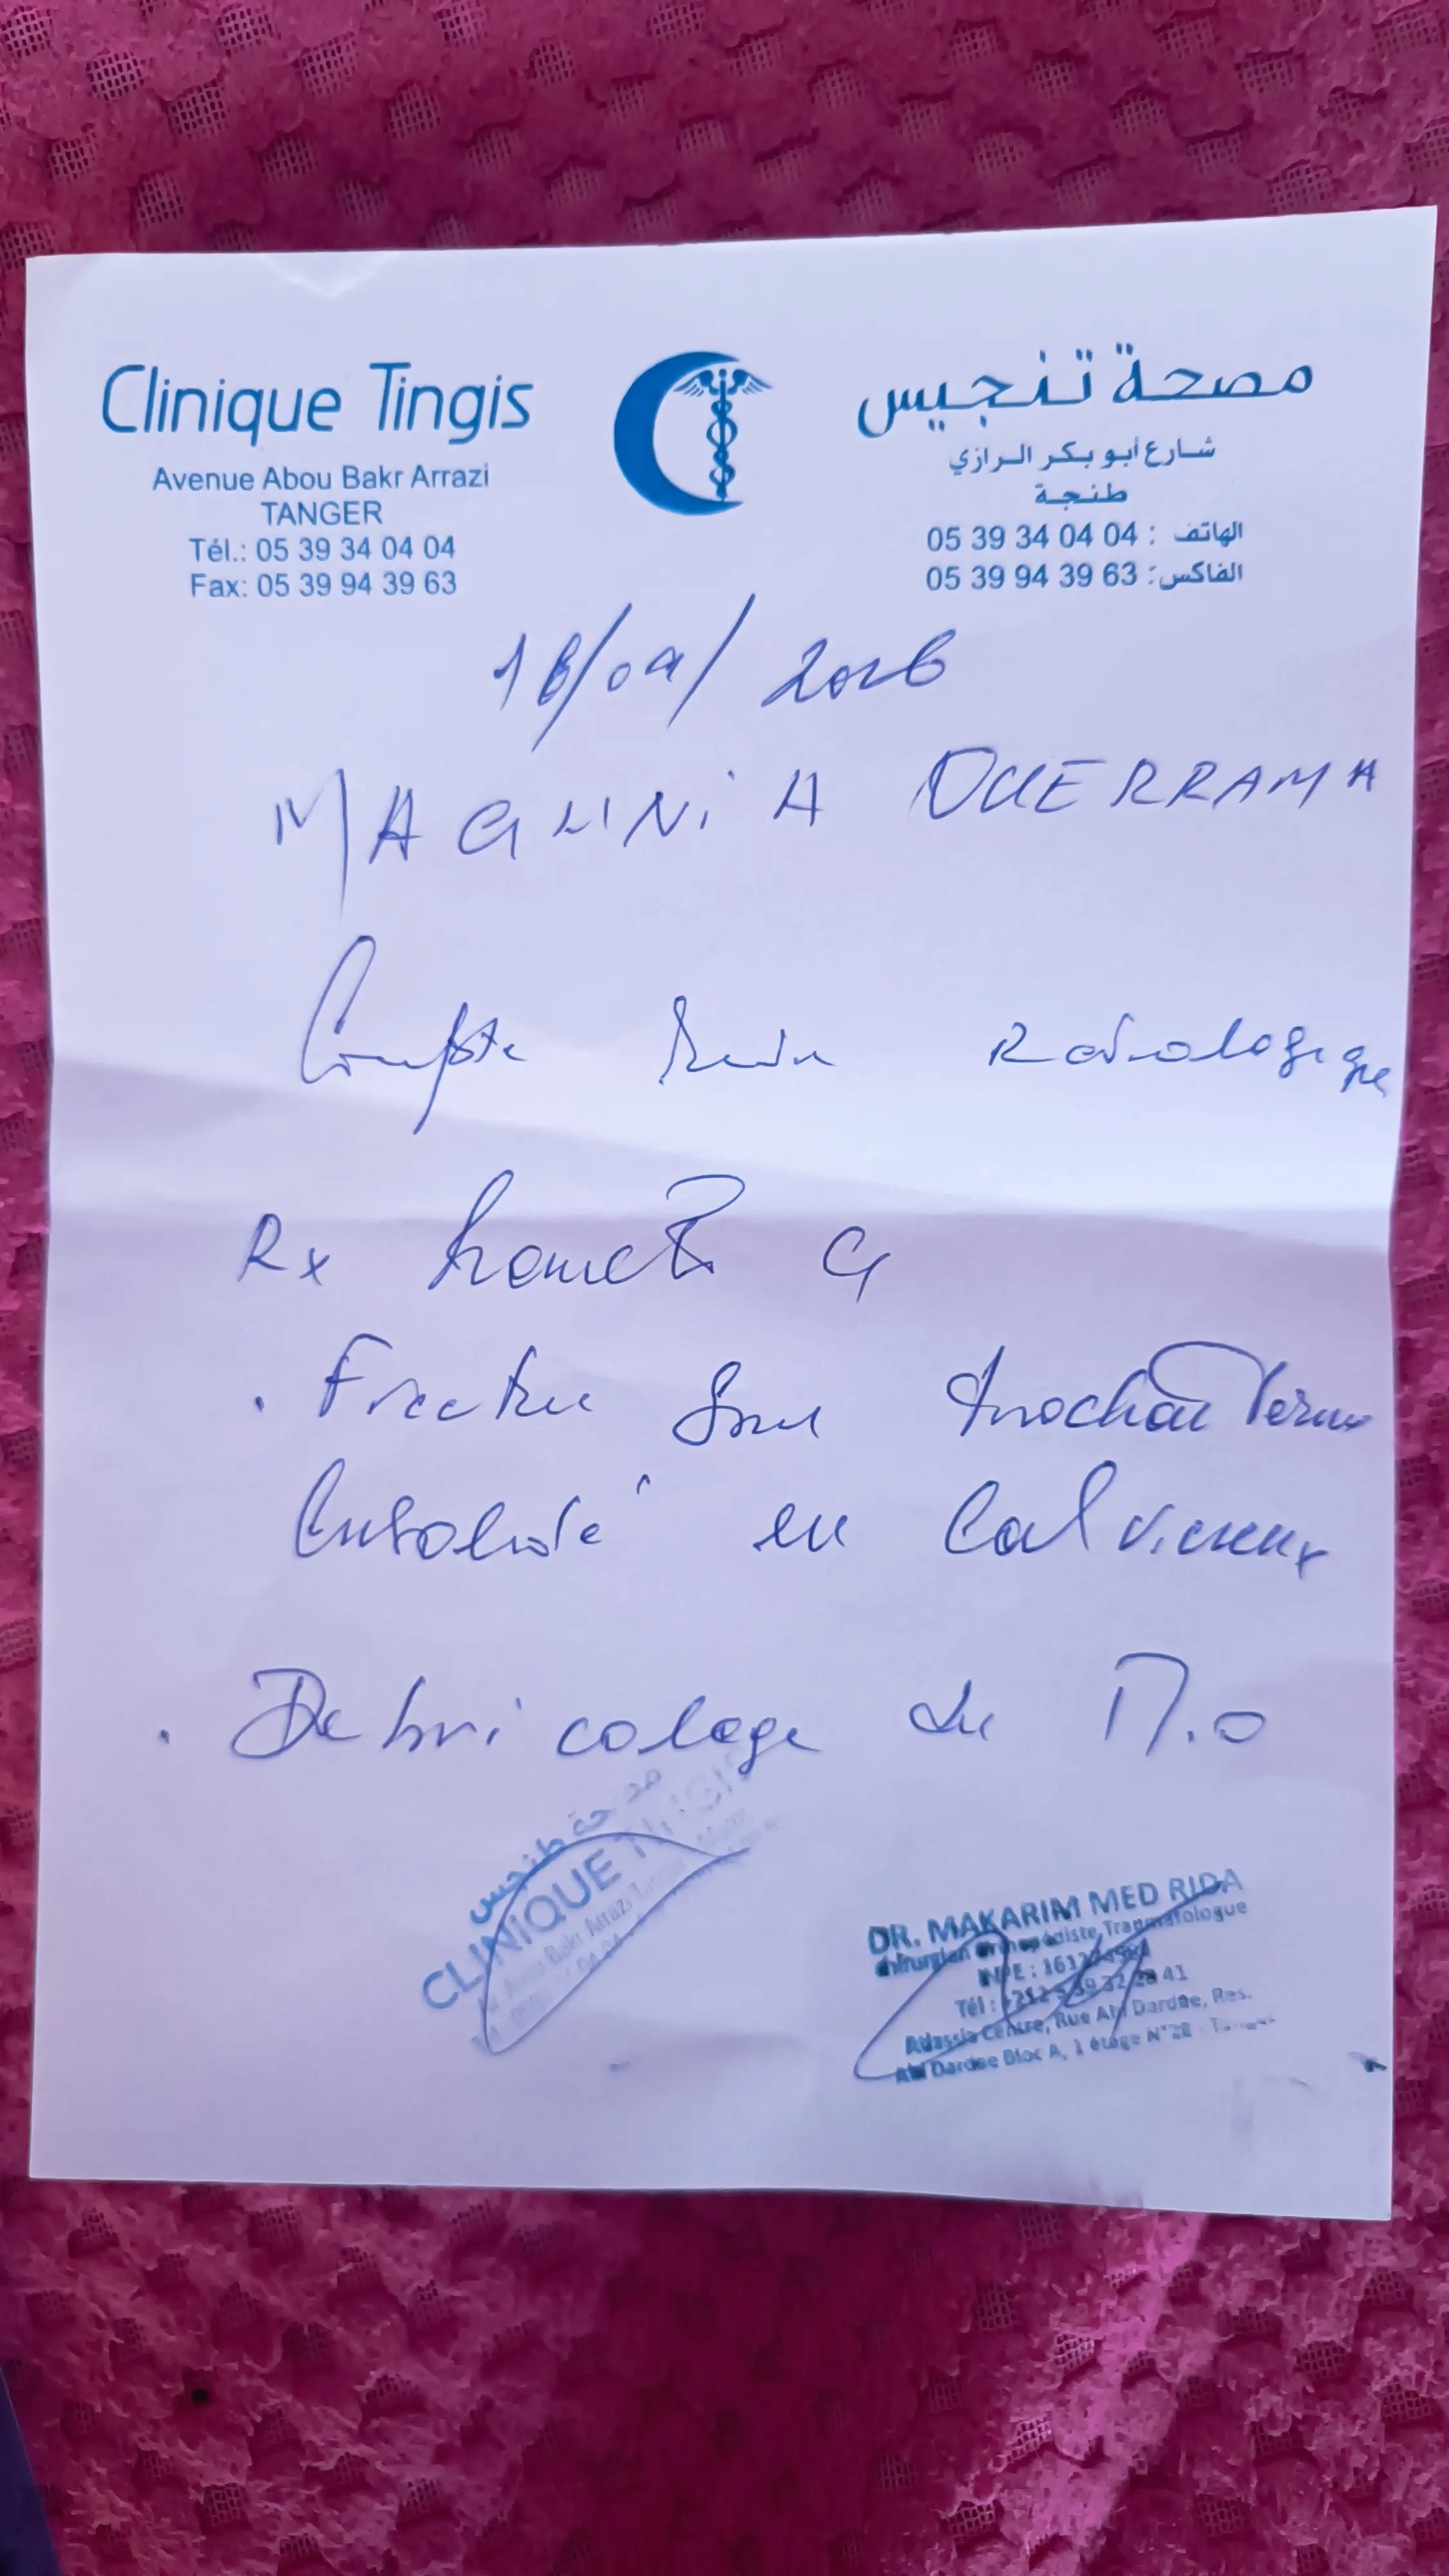 Clinique Tingis
Avenue Abou Bakr Arrazi
TANGER
Tél.: 05 39 34 04 04
Fax: 05 39 94 39 63
مصحة تنجيس
شارع أبو بكر الرازي
طنجة
الهاتف : 05 39 34 04 04
الفاكس: 05 39 94 39 63
/ 2026
MAGHNiA OUERRAMA
Compte Rendu Radiologique
Rx G
. Fracture Sous trochanterienne
Consolidé en Cal vicieux
. Debricolage du M.O
مصحة طنجيس
CLINIQUE TINGIS
DR. MAKARIM MED RIDA
Chirurgien Orthopédiste Traumatologue
INPE :
Tél :
Centre, Rue Abi Dardae, Res.
Abi Dardae Bloc A, 1 étage